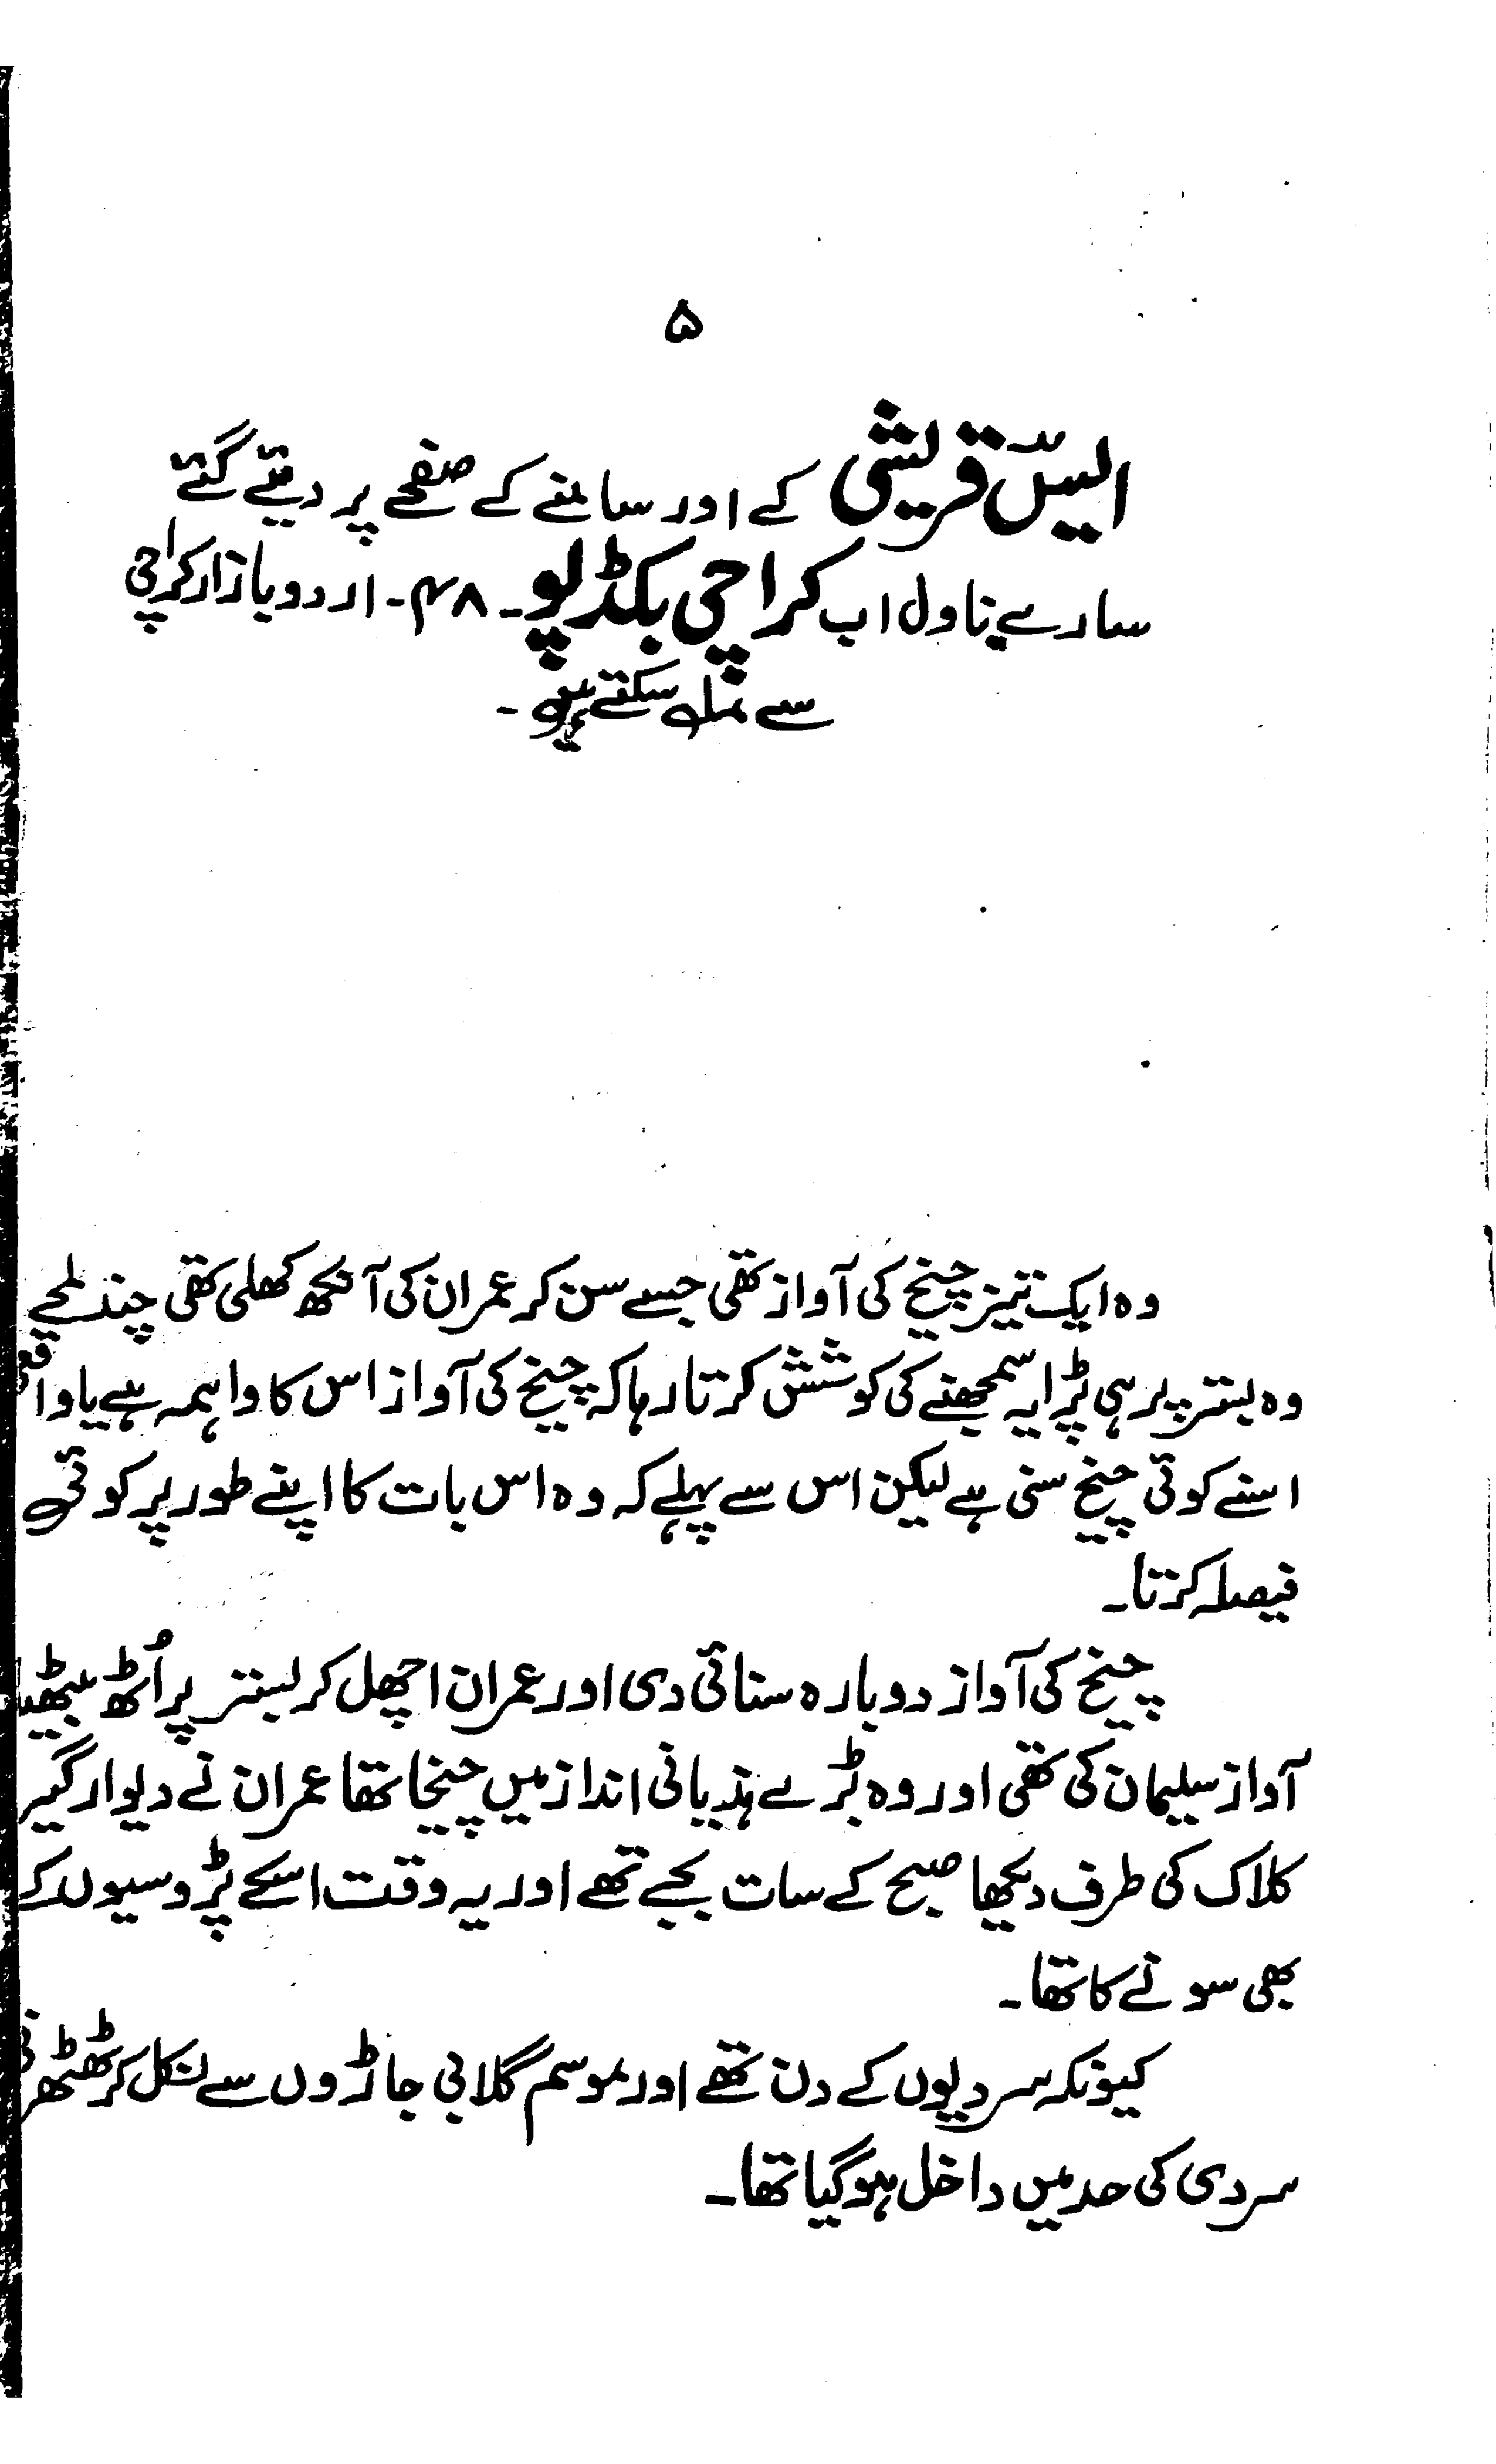 ۵
ایسّ قریشی کے اور سامنے کے صفحے پر دیئے گئے
سارے ناول اب کراچی بکڈپو۔ ۴۸۔ اردو بازار کراچی
سے مل سکتے ہیں۔
وہ ایک تیز چیخ کی آواز تھی جسے سن کر عمران کی آنکھ کھلی تھی چند لمحے
وہ بستر پر ہی پڑا یہ سمجھنے کی کوشش کرتا رہا کہ چیخ کی آواز اس کا واہمہ ہے یا واقعی
اسنے کوئی چیخ سنی ہے لیکن اس سے پہلے کہ وہ اس بات کا اپنے طور پر کوئی
فیصلہ کرتا۔
چیخ کی آواز دوبارہ سنائی دی اور عمران اچھل کر بستر پر اُٹھ بیٹھا
آواز سلیمان کی تھی اور وہ بڑے ہذیانی انداز میں چیخا تھا عمران نے دیوار گیر
کلاک کی طرف دیکھا صبح کے سات بجے تھے اور یہ وقت اسکے پڑوسیوں کے
بھی سونے کا تھا۔
کیونکہ سردیوں کے دن تھے اور موسم گلابی جاڑوں سے نکل کر ٹھٹھرتی
سردی کی حد میں داخل ہوگیا تھا۔